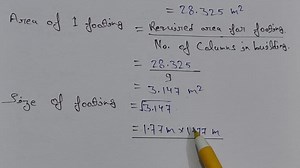 = 28.325 m²
Area of 1 footing = Required area for footing.
No. of Columns in building.
= 28.325
9
= 3.147 m²
Size of footing = √3.147
= 1.77 m × 1.77 m